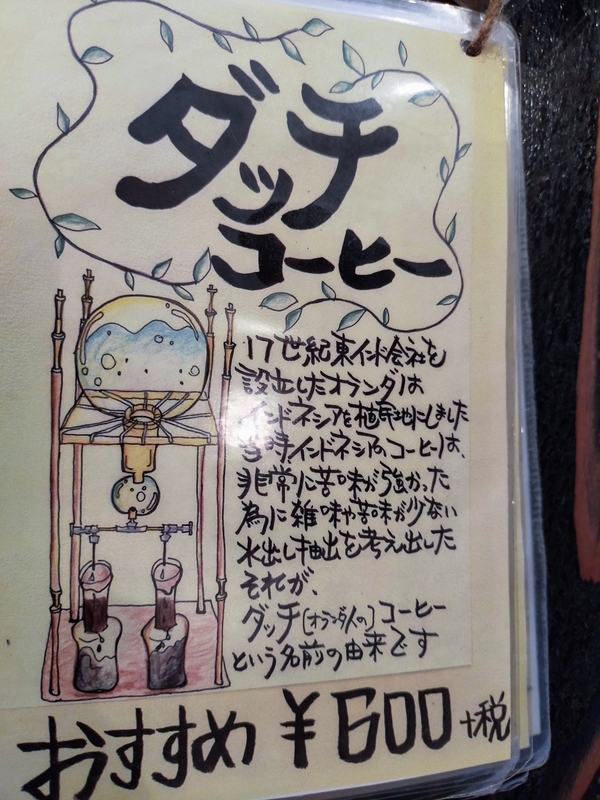 ダッチ
コーヒー
17世紀東インド会社を
設立したオランダは
インドネシアを植民地にしました
当時インドネシアのコーヒーは、
非常に苦味が強かった
為に雑味や苦味が少ない
水出し抽出を考え出した
それが、
ダッチ[オランダ人の]コーヒー
という名前の由来です
おすすめ ¥600+税